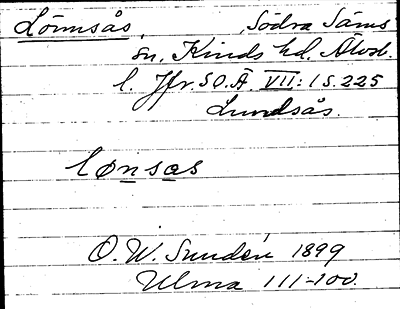 Lönnsås, Södra Säms
sn, Kinds hd. Älvsb.
l. Jfr. S.O.Ä. VII:1 s. 225
Lundsås.
lønsas
O. W. Sundén 1899
Ulma 111:100.